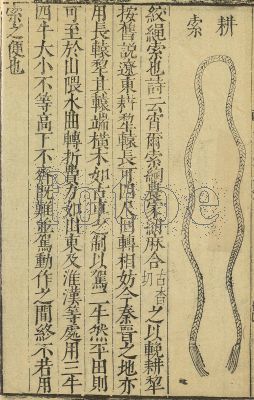 耕索
絞繩索也詩云宵爾索綯農家紉麻合古沓切之以輓耕犂
按舊說遼東耕犂轅長可四尺回轉相妨今秦晉之地亦
用長轅犂其轅端橫木如古車之制以駕二牛然平田則
可至於山隈水曲轉折費力如山東及淮漢等處用三牛
四牛大小不等高下不齊既難並駕動作之間終不若用
索之便也